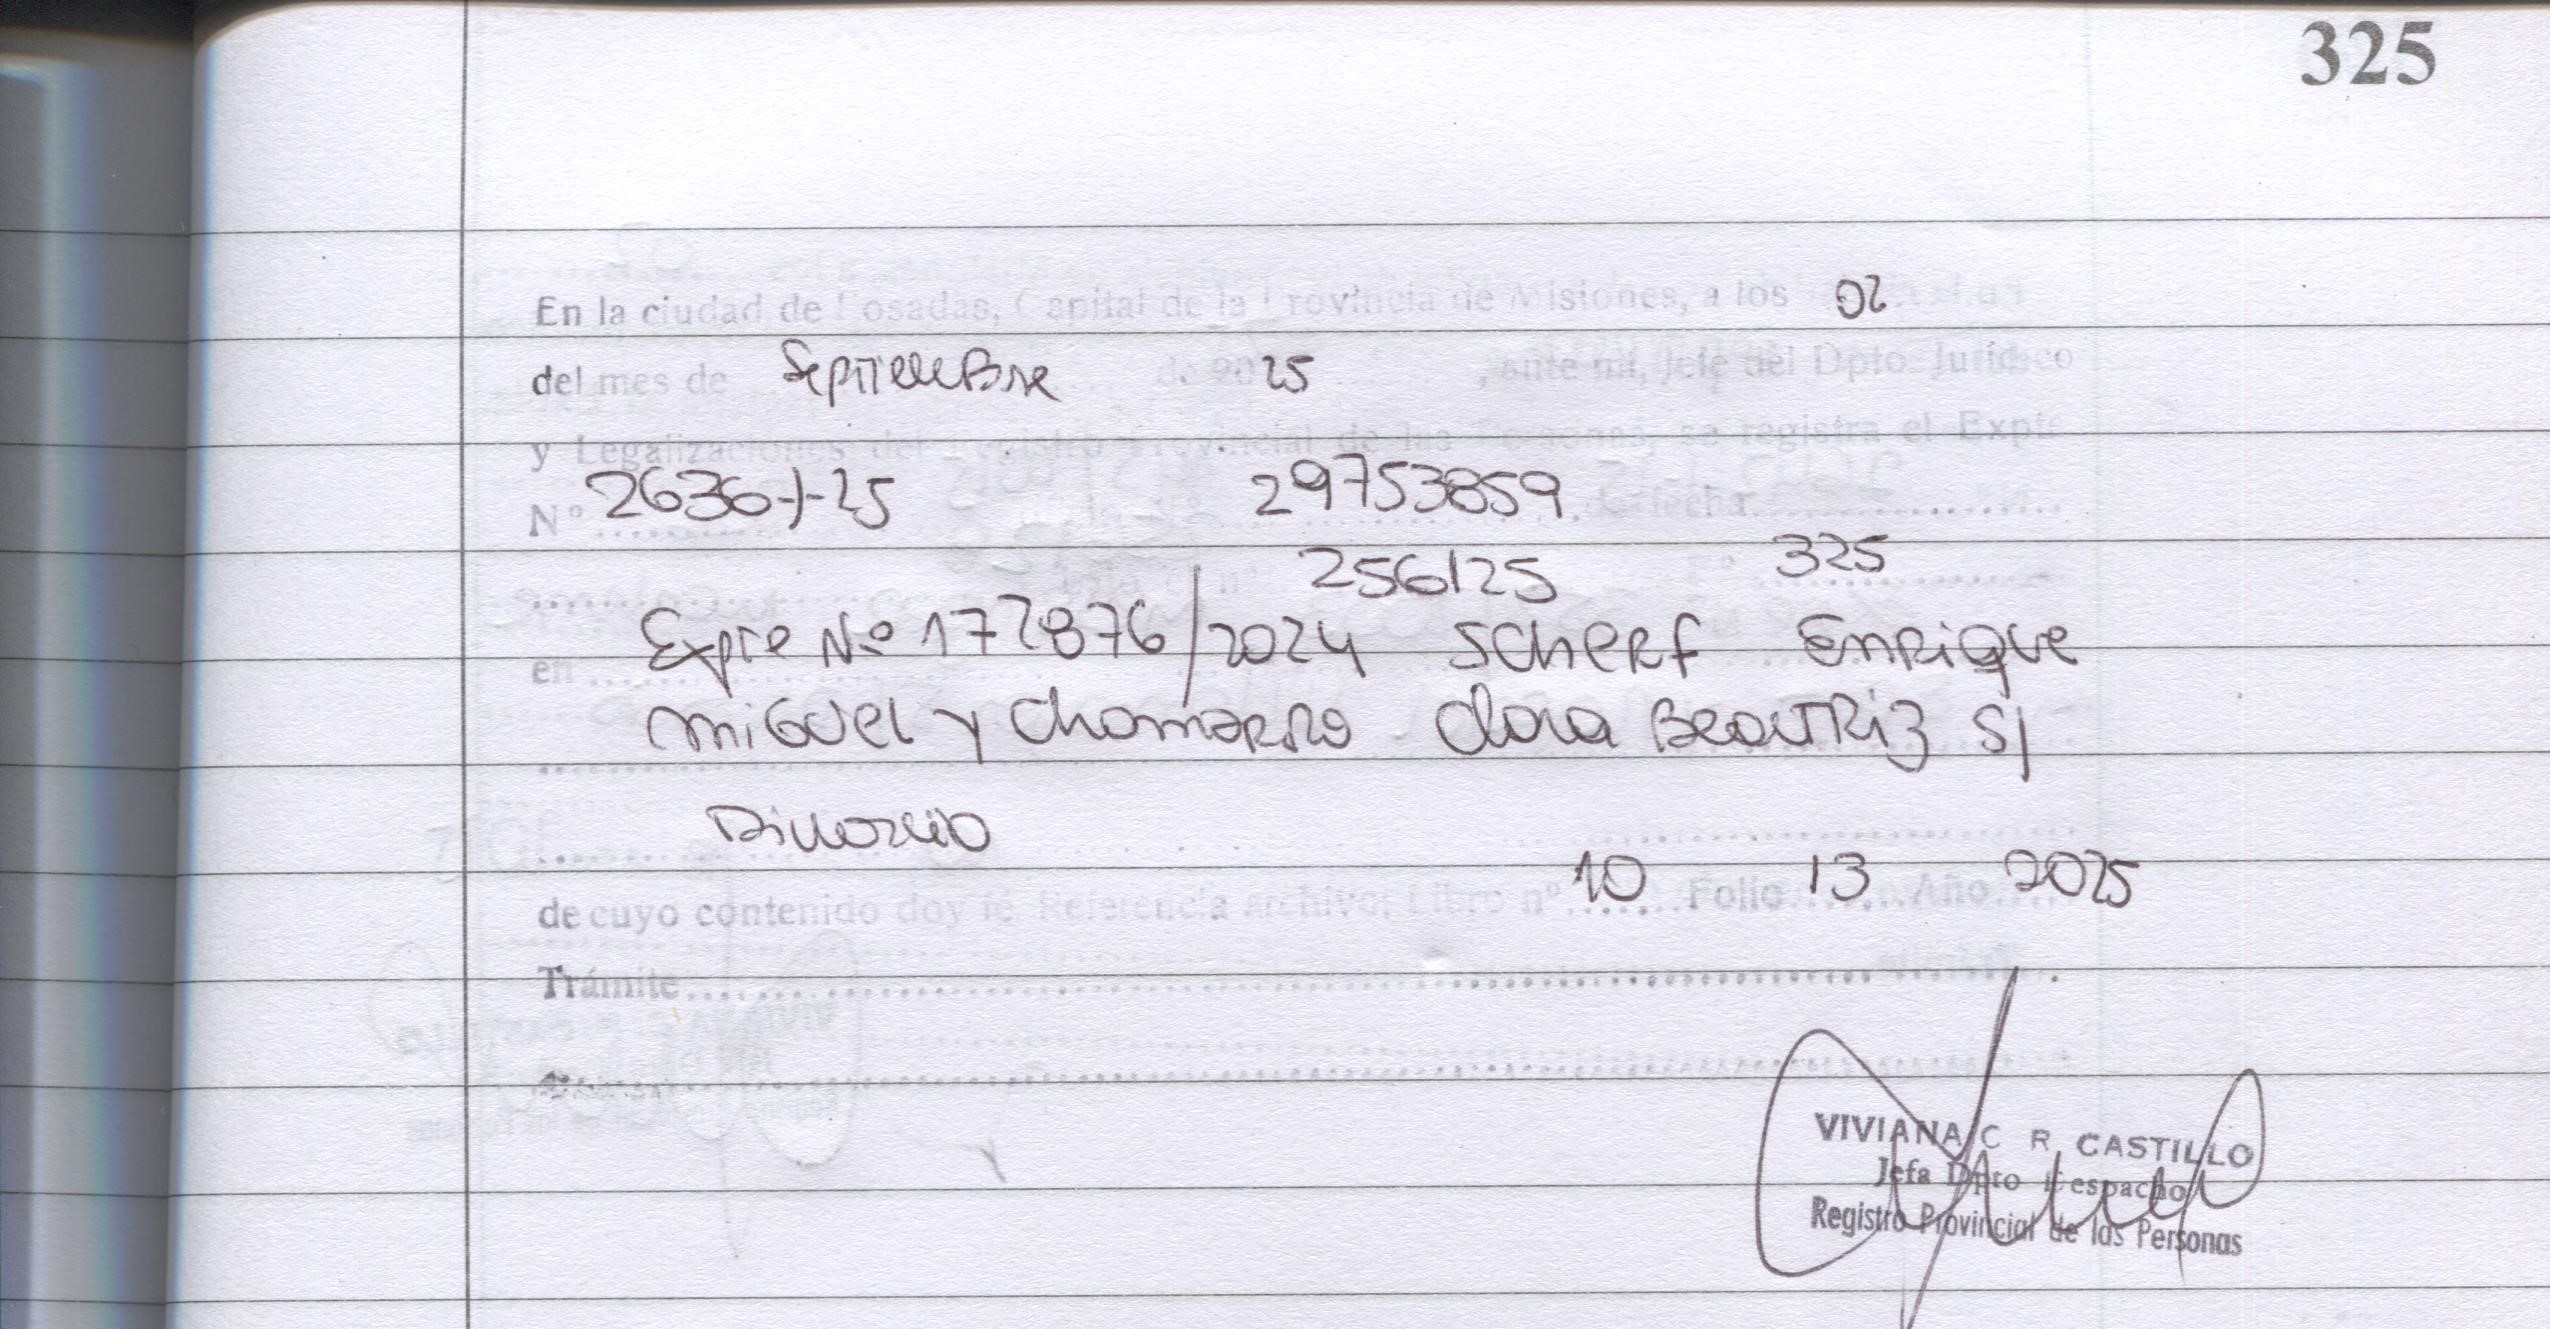 325
En la ciudad de Posadas, Capital de la Provincia de Misiones, a los 02
del mes de Septiembre de 20 25, ante mi, Jefe del Dpto. Jurídico
y Legalizaciones del Registro Provincial de las Personas, se registra el Expte
Nº 2636-J-25 29753859 de fecha
256/25 Fº 325
en Expte Nº 172876/2024 Scherf Enrique
Miguel y Chamorro Clara Beatriz S/
Divorcio
de cuyo contenido doy fé. Referencia archivo: Libro nº 10 Folio 13 Año 2025
Trámite
VIVIANA C R CASTILLO
Jefa Dpto Despacho
Registro Provincial de las Personas